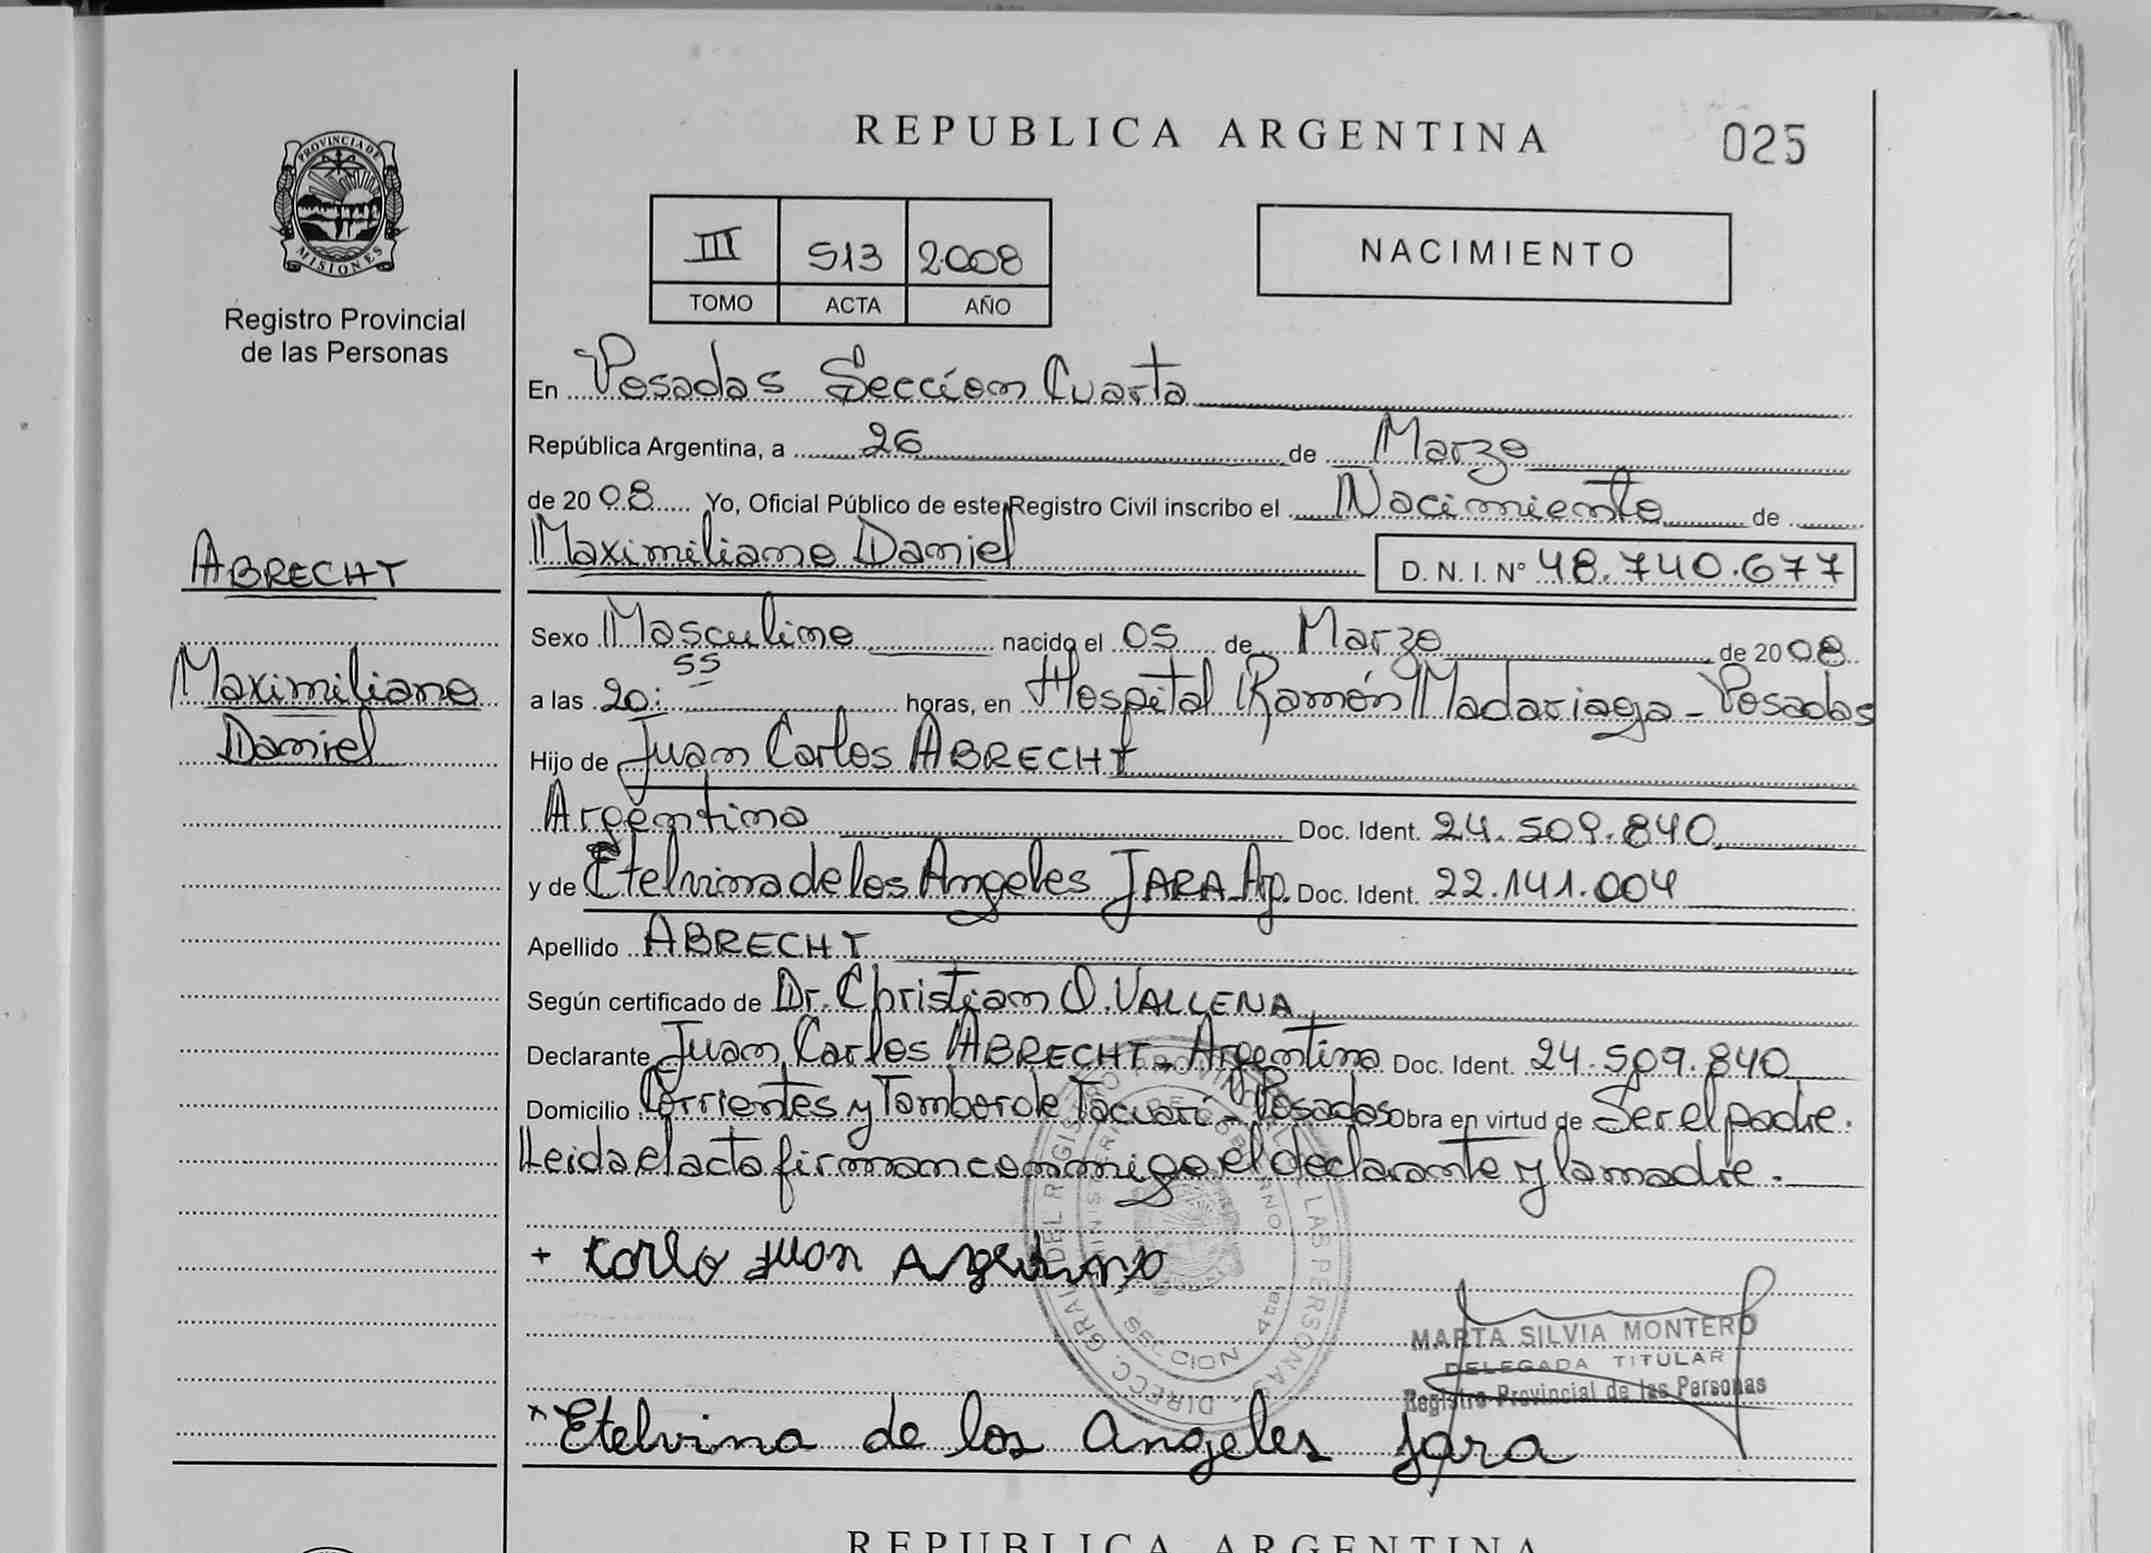 REPUBLICA ARGENTINA
025
PROVINCIA DE
MISIONES
Registro Provincial
de las Personas
III 513 2008
TOMO ACTA AÑO
NACIMIENTO
En Posadas Seccion Cuarta
República Argentina, a 26 de Marzo
de 2008 Yo, Oficial Público de este Registro Civil inscribo el Nacimiento de
Maximiliano Daniel D. N. I. N° 48.740.677
ABRECHT
Maximiliano
Daniel
Sexo Masculino nacido el 05 de Marzo de 2008
a las 20:55 horas, en Hospital Ramón Madariaga - Posadas
Hijo de Juan Carlos ABRECHT
Argentino Doc. Ident. 24.509.840
y de Etelvina de los Angeles JARA Ap. Doc. Ident. 22.141.004
Apellido ABRECHT
Según certificado de Dr. Christian O. VALLENA
Declarante Juan Carlos ABRECHT - Argentino Doc. Ident. 24.509.840
Domicilio Corrientes y Tambor de Tacuarí - Posadas Obra en virtud de Ser el padre.
Leida el acta firman conmigo el declarante y la madre.
DIRECC. GRAL. DEL REGISTRO PROVINCIAL DE LAS PERSONAS
MINISTERIO DE GOBIERNO
SECCION 4ta
+ Corlo Juan
MARTA SILVIA MONTERO
DELEGADA TITULAR
Registro Provincial de las Personas
x Etelvina de los Angeles Jara
REPUBLICA ARGENTINA